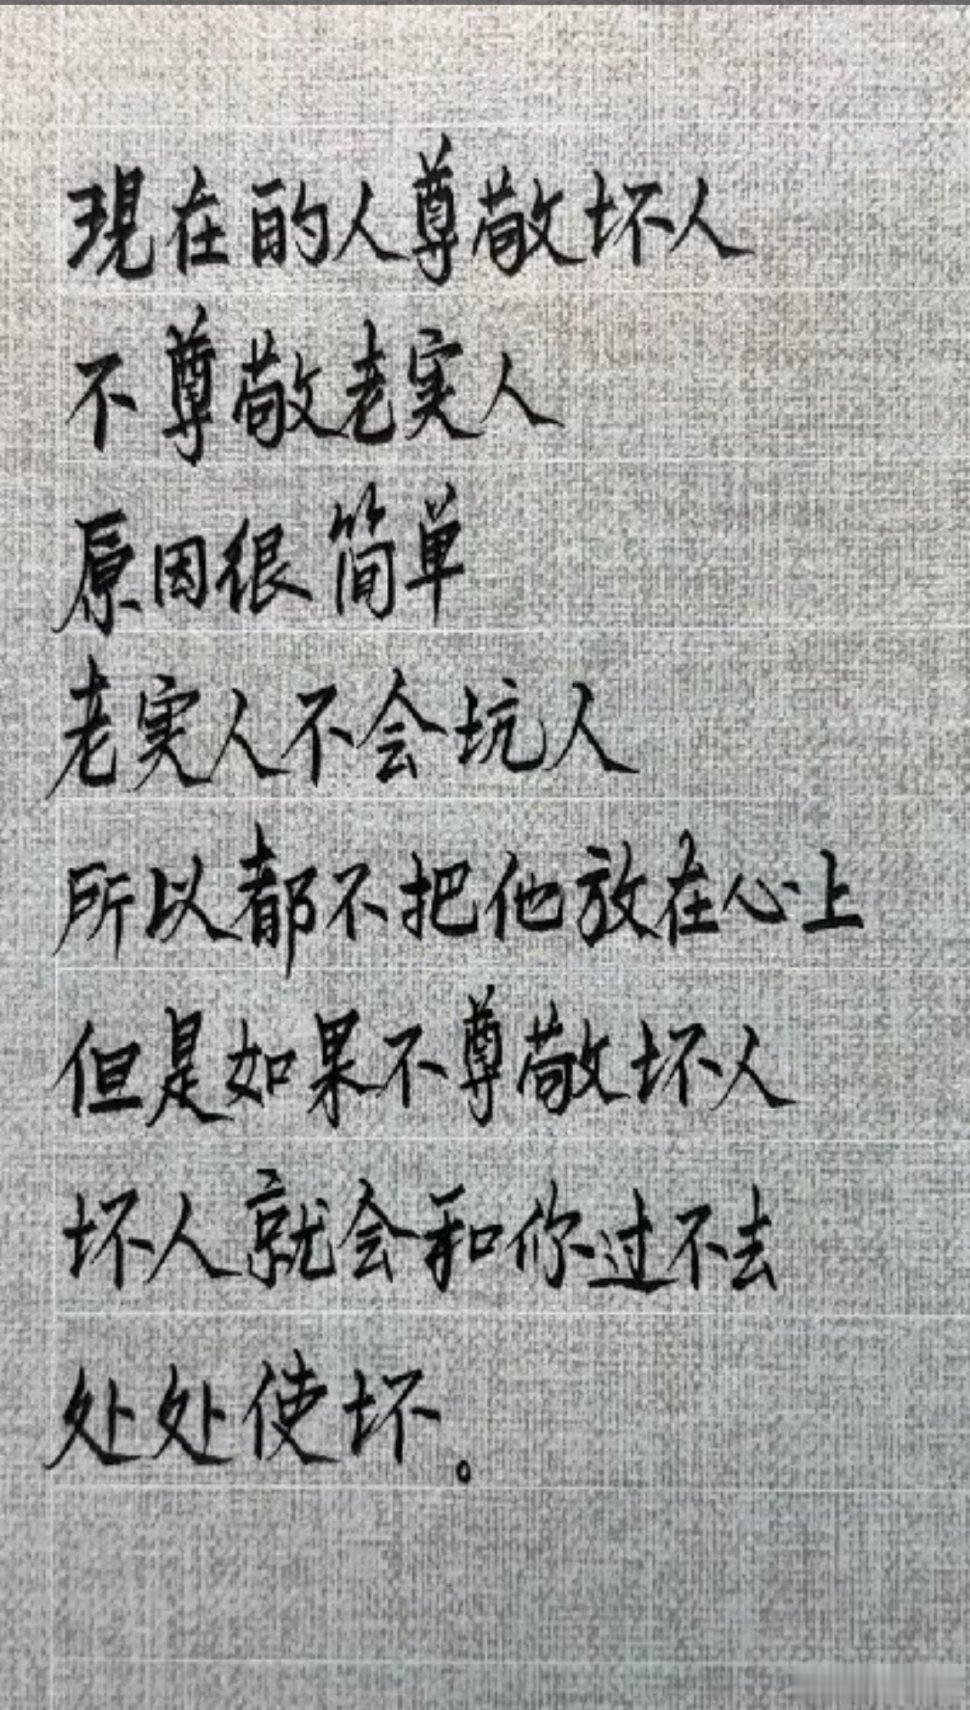 现在的人尊敬坏人
不尊敬老实人
原因很简单
老实人不会坑人
所以都不把他放在心上
但是如果不尊敬坏人
坏人就会和你过不去
处处使坏。